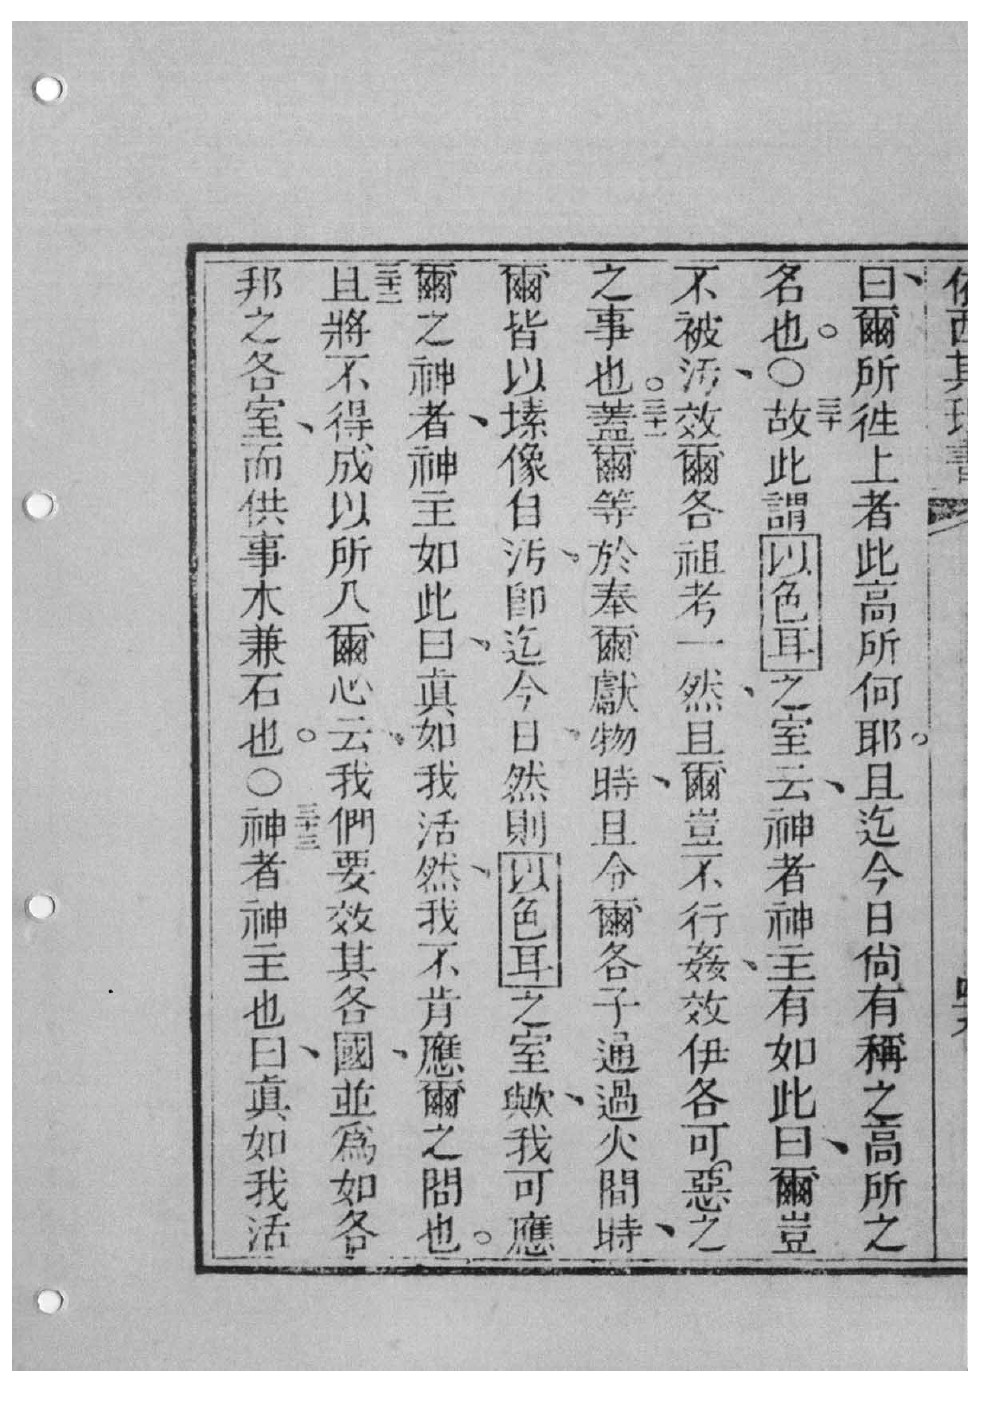 曰、爾所徃上者此高所何耶。且迄今日尙有稱之高所之
名也。○三十故此謂以色耳之室云、神者神主有如此曰、爾豈
不被汚、效爾各祖考一然、且爾豈不行姦、效伊各可惡之
之事也。三十一蓋爾等於奉爾獻物時、且令爾各子通過火間時、
爾皆以塐像自汚、卽迄今日、然則以色耳之室歟、我可應
爾之神者、神主如此曰、眞如我活然、我不肯應爾之問也。
三十二且將不得成以所入爾心云、我們要效其各國、並爲如各
邦之各室、而供事木兼石也。○三十三神者神主也曰、眞如我活